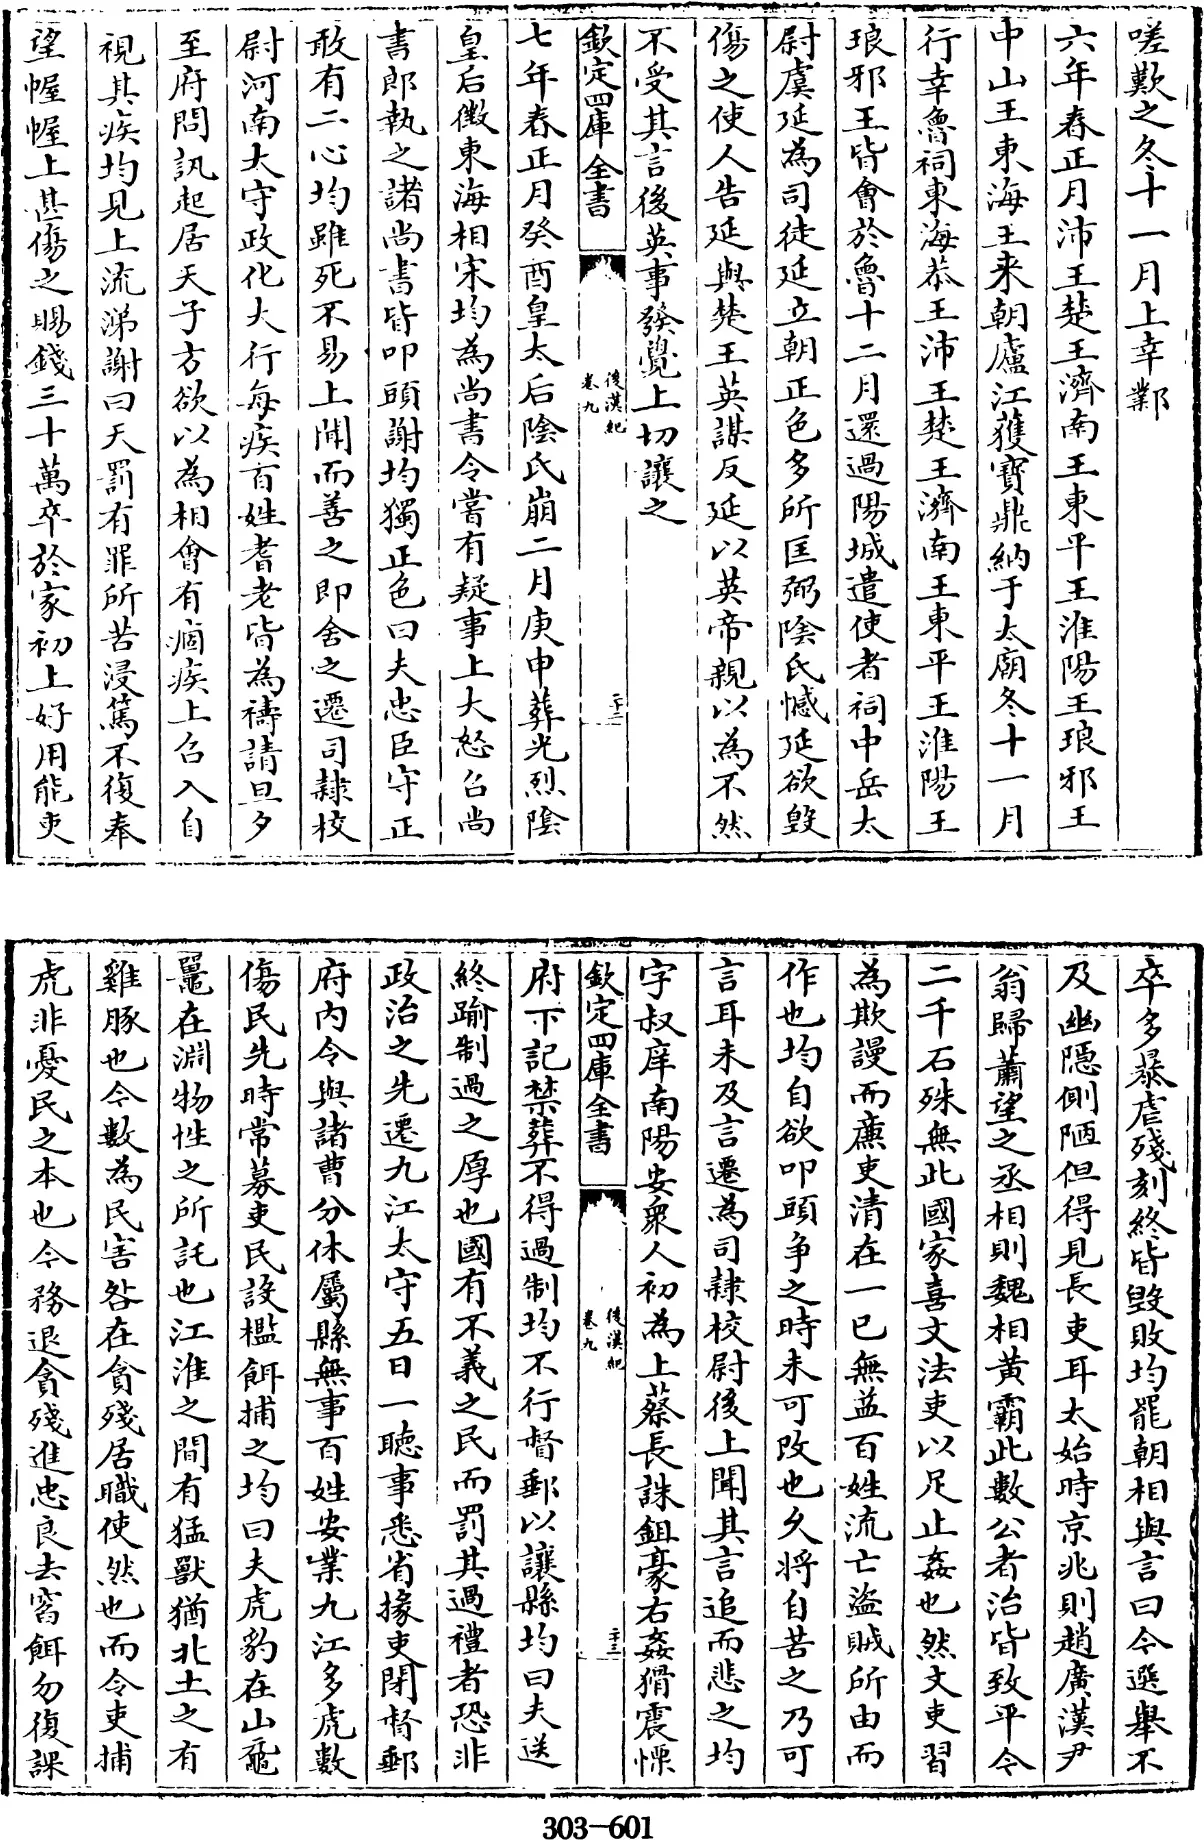 嗟歎之冬十一月上幸鄴
六年春正月沛王楚王濟南王東平王淮陽王琅邪王
中山王東海王来朝廬江獲寶鼎納于太廟冬十一月
行幸魯祠東海恭王沛王楚王濟南王東平王淮陽王
琅邪王皆會於魯十二月還過陽城遣使者祠中岳太
尉虞延為司徒延立朝正色多所匡弼陰氏憾延欲毀
傷之使人告延與楚王英謀反延以英帝親以為不然
不受其言後英事發覺上切讓之
欽定四庫全書
後漢紀
卷九
二十二
七年春正月癸酉皇太后陰氏崩二月庚申葬光烈陰
皇后徵東海相宋均為尚書令嘗有疑事上大怒召尚
書郎執之諸尚書皆叩頭謝均獨正色曰夫忠臣守正
敢有二心均雖死不易上聞而善之即舍之遷司隸校
尉河南太守政化大行每疾百姓耆老皆為禱請旦夕
至府問訊起居天子方欲以為相會有痼疾上召入自
視其疾均見上流涕謝曰天罰有罪所苦浸篤不復奉
望幄幄上甚傷之賜錢三十萬卒於家初上好用能吏
卒多暴虐殘刻終皆毀敗均罷朝相與言曰今選舉不
及幽隱側陋但得見長吏耳太始時京兆則趙廣漢尹
翁歸蕭望之丞相則魏相黃霸此數公者治皆致平今
二千石殊無此國家喜文法吏以足止姦也然文吏習
為欺謾而廉吏清在一已無益百姓流亡盜賊所由而
作也均自欲叩頭争之時未可改也久將自苦之乃可
言耳未及言遷為司隸校尉後上聞其言追而悲之均
字叔庠南陽安衆人初為上蔡長誅鉏豪右姦猾震慄
欽定四庫全書
後漢紀
卷九
二十三
府下記禁葬不得過制均不行督郵以讓縣均曰夫送
終踰制過之厚也國有不義之民而罰其過禮者恐非
政治之先遷九江太守五日一聽事悉省掾吏閉督郵
府内令與諸曹分休屬縣無事百姓安業九江多虎數
傷民先時常募吏民設檻餌捕之均曰夫虎豹在山黿
鼉在淵物性之所託也江淮之間有猛獸猶北土之有
雞豚也今數為民害咎在貪殘居職使然也而令吏捕
虎非憂民之本也今務退貪殘進忠良去穽餌勿復課
303-601